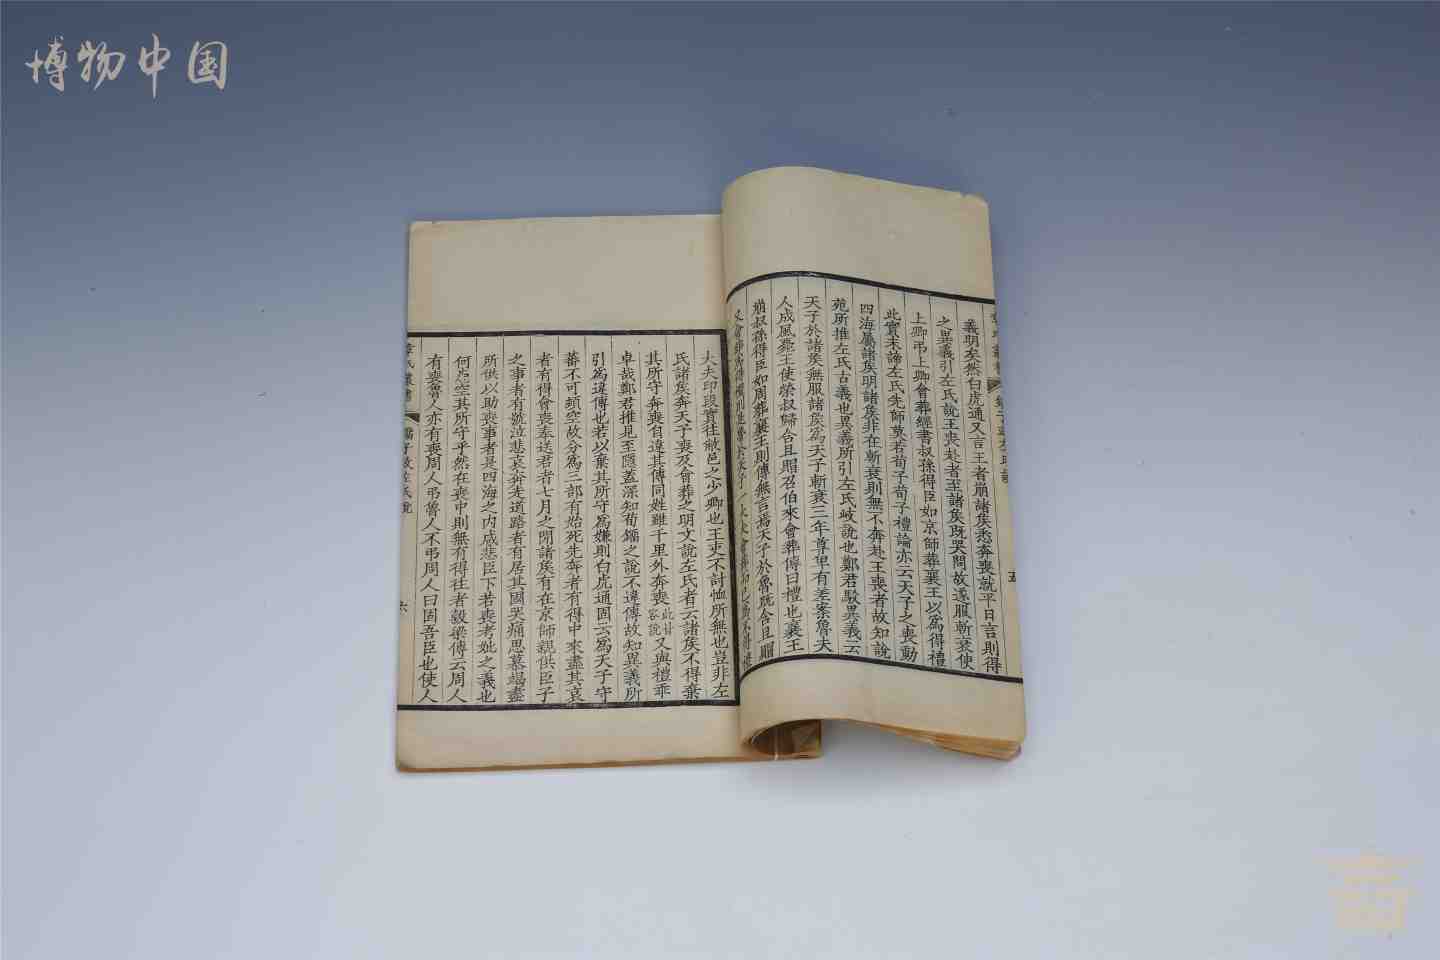 博物中国
義明矣然白虎通又言王者崩諸侯悉奔喪就平日言則得
之異義引左氏說王喪赴者至諸侯既哭問故遂服斬衰使
上卿弔上卿會葬經書叔孫得臣如京師葬襄王以為得禮
此實未諦左氏先師莫若荀子荀子禮論亦云天子之喪動
四海屬諸侯明諸侯非在斬衰則無不奔赴王喪者故知說
苑所推左氏古義也異義所引左氏歧說也鄭君駁異義云
天子於諸侯無服諸侯為天子斬衰三年尊卑有差案魯夫
人成風薨王使榮叔歸含且賵召伯來會葬傳曰禮也襄王
崩叔孫得臣如周葬襄王則傳無言焉天子於魯既含且賵
五
大夫印段實往敝邑之少卿也王吏不討恤所無也豈非左
氏諸侯奔天子喪及會葬之明文說左氏者云諸侯不得棄
其所守奔喪自違其傳同姓雖千里外奔喪此甘容說又與禮乖
卓哉鄭君推見至隱蓋深知荀鐂之說不違傳故知異義所
引為違傳也若以棄其所守為嫌則白虎通固云為天子守
蕃不可頓空故分為三部有始死先奔者有得中來盡其哀
者有得會喪奉送君者七月之閒諸侯有在京師親供臣子
之事者有號泣悲哀奔走道路者有居其國哭痛思慕竭盡
所供以助喪事者是四海之內咸悲臣下若喪考妣之義也
何患空其所守乎然在喪中則無有得往者穀梁傳云周人
有喪魯人亦有喪周人弔魯人不弔周人曰固吾臣也使人
章氏叢書
鐂子政左氏說
六